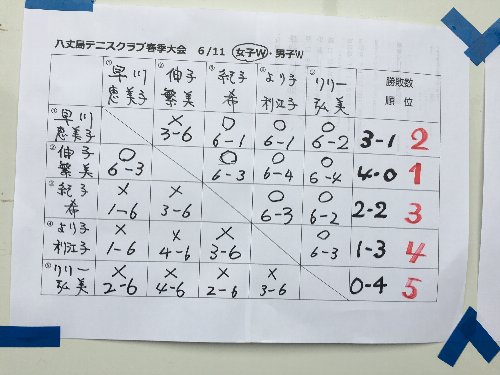 八丈島テニスクラブ春季大会 6/11 女子W・男子W
① 早川 恵美子 ② 伸子 繁美 ③ 紀子 希 ④ より子 利江子 ⑤ リリー 弘美 勝敗数 順位
① 早川 恵美子 × 3-6 ○ 6-1 ○ 6-1 ○ 6-2 3-1 2
② 伸子 繁美 ○ 6-3 ○ 6-3 ○ 6-4 ○ 6-4 4-0 1
③ 紀子 希 × 1-6 × 3-6 ○ 6-3 ○ 6-2 2-2 3
④ より子 利江子 × 1-6 × 4-6 × 3-6 ○ 6-3 1-3 4
⑤ リリー 弘美 × 2-6 × 4-6 × 2-6 × 3-6 0-4 5